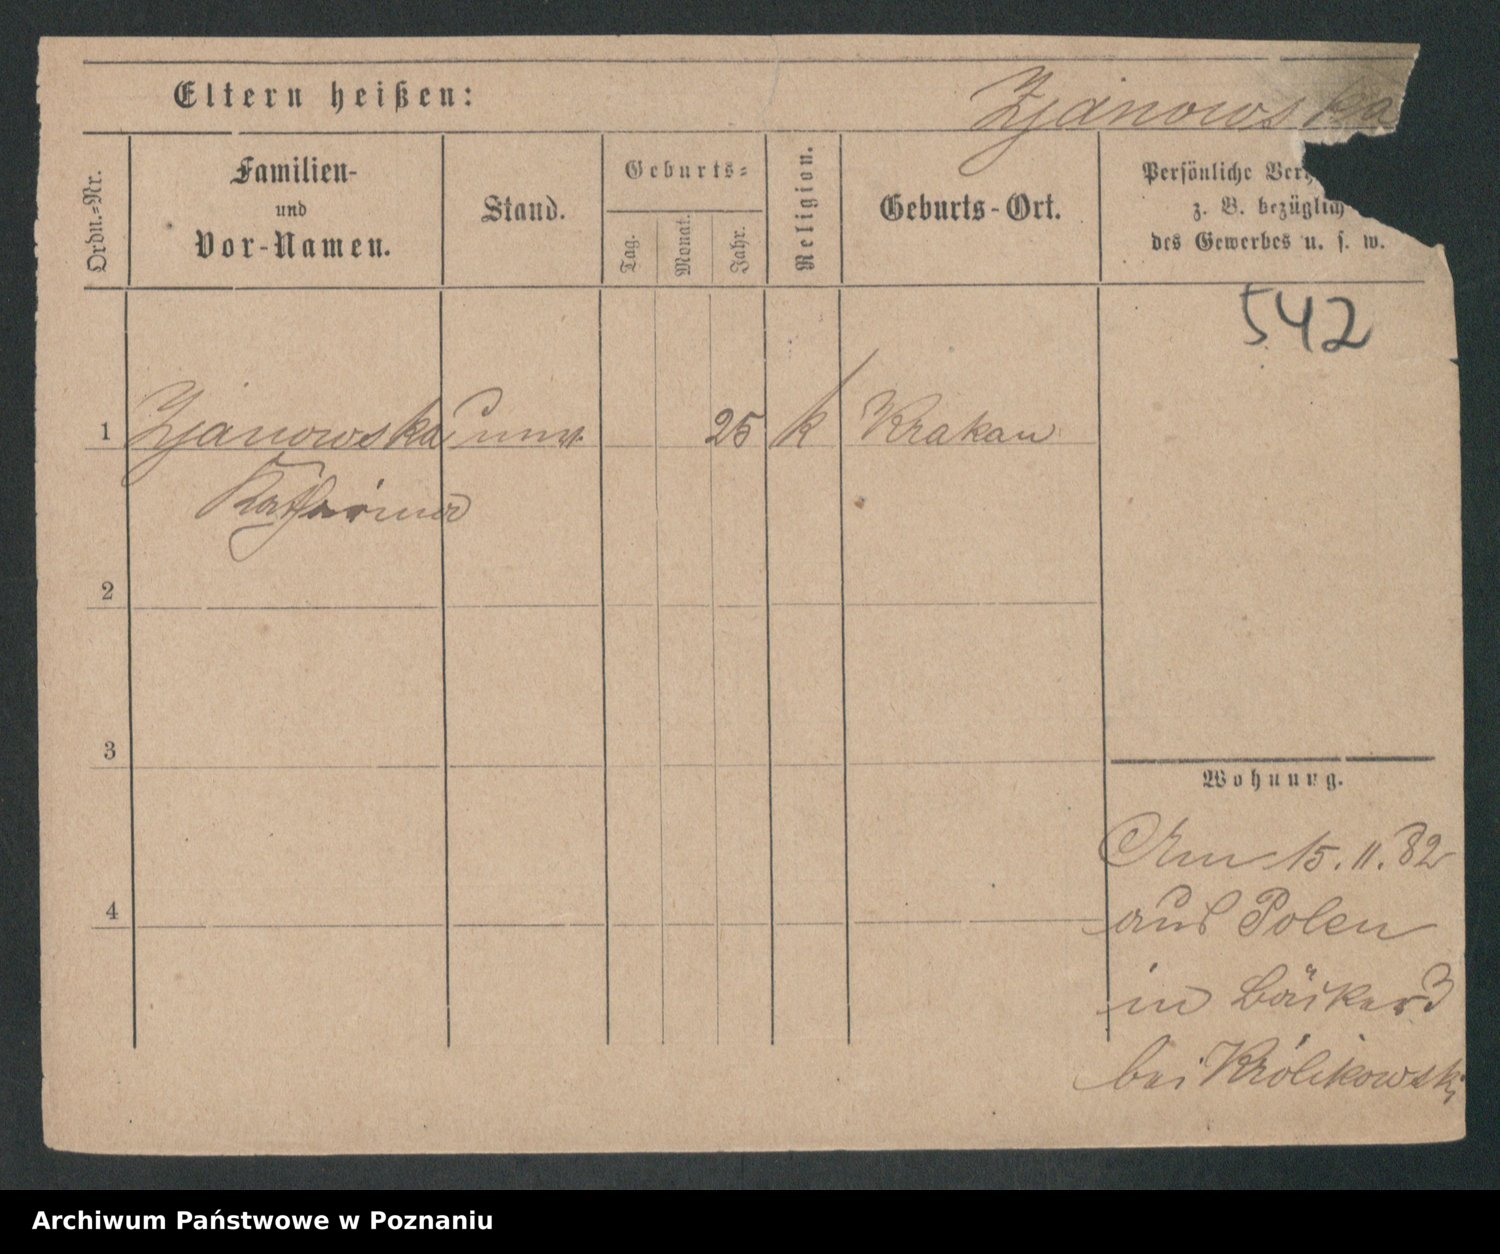 Eltern heißen:
Zjanowska
Ordn.-Nr.
Familien-
und
Vor-Namen.
Stand.
Geburts-
Tag.
Monat.
Jahr.
Religion.
Geburts-Ort.
Persönliche
z. B. bezüglich
des Gewerbes u. s. w.
542
1 Zjanowska 25 k Krakau
Katharina
2
3
4
Wohnung.
Am 15.11.82
aus Polen
in Bäcker 3
bei Królikowski
Archiwum Państwowe w Poznaniu